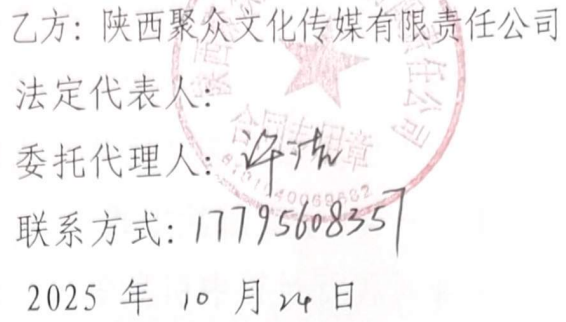 乙方：陕西聚众文化传媒有限责任公司
法定代表人：
委托代理人：许
联系方式：17795608357
2025 年 10 月 24 日
合同专用章